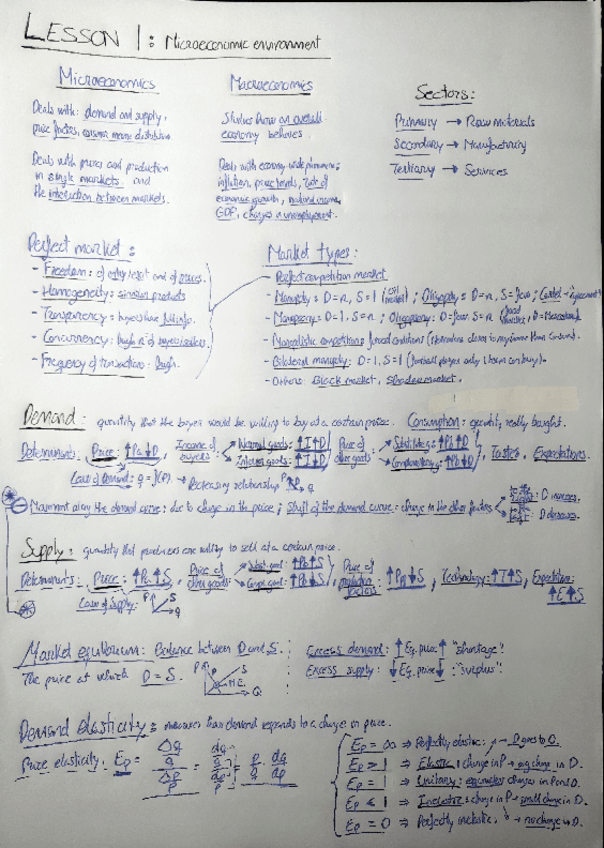 LESSON 1: Microeconomic environment
Microeconomics
Deals with: demand and supply,
price factors, income distribution
Deals with prices and production
in single markets and
the interaction between markets.
Macroeconomics
Studies how an overall
economy behaves.
Deals with economy-wide phenomena:
inflation, price levels, rate of
economic growth, national income,
GDP, changes in unemployment.
Sectors:
Primary → Raw materials
Secondary → Manufacturing
Tertiary → Services
Perfect market:
- Freedom: of entry/exit and of prices.
- Homogeneity: similar products
- Transparency: buyers have full info.
- Concurrency: high nº of buyers/sellers.
- Frequency of transactions: high.
Market types:
- Perfect competition market
- Monopoly: D=n, S=1; Oligopoly: D=n, S=few; Cartel = "agreement"
- Monopsony: D=1, S=n; Oligopsony: D=few, S=n
- Monopolistic competition:
- Bilateral monopoly: D=1, S=1
- Others: Black market, Shadow market.
Demand: quantity that the buyer would be willing to buy at a certain price. Consumption: quantity really bought.
Determinants: Price: ↑Pa ↓D, Income of buyers → Normal goods: ↑I ↑D → Inferior goods: ↑I ↓D, Price of other goods → Substitutes: ↑Pb ↑D → Complementary: ↑Pb ↓D, Tastes, Expectations.
Law of demand: q = f(P). → Decreasing relationship P q
Movement along the demand curve: due to change in the price; Shift of the demand curve: change in the other factors D increases. D decreases.
Supply: quantity that producers are willing to sell at a certain price.
Determinants: Price: ↑Pa ↑S, Price of other goods: → Subst. good: ↑Pb ↓S → Compl. good: ↑Pb ↑S, Price of production factors: ↑Pp ↓S, Technology: ↑T ↑S, Expectation: ↑E ↑S
Law of Supply: P S Q
Market equilibrium: Balance between D and S.
The price at which D = S.
P S P M.E. D Q
Excess demand: ↑ Eq. price ↑ "shortage"
Excess supply: ↓ Eq. price ↓ "surplus"
Demand elasticity: measures how demand responds to a change in price.
Price elasticity: Ep = Δq/q / Δp/p = dq/q / dp/p = p/q · dq/dp
Ep = ∞ ⇒ Perfectly elastic: D goes to 0.
Ep > 1 ⇒ Elastic: change in P → big change in D.
Ep = 1 ⇒ Unitary: changes in P and D.
Ep < 1 ⇒ Inelastic: change in P → small change in D.
Ep = 0 ⇒ Perfectly inelastic: → no change in D.